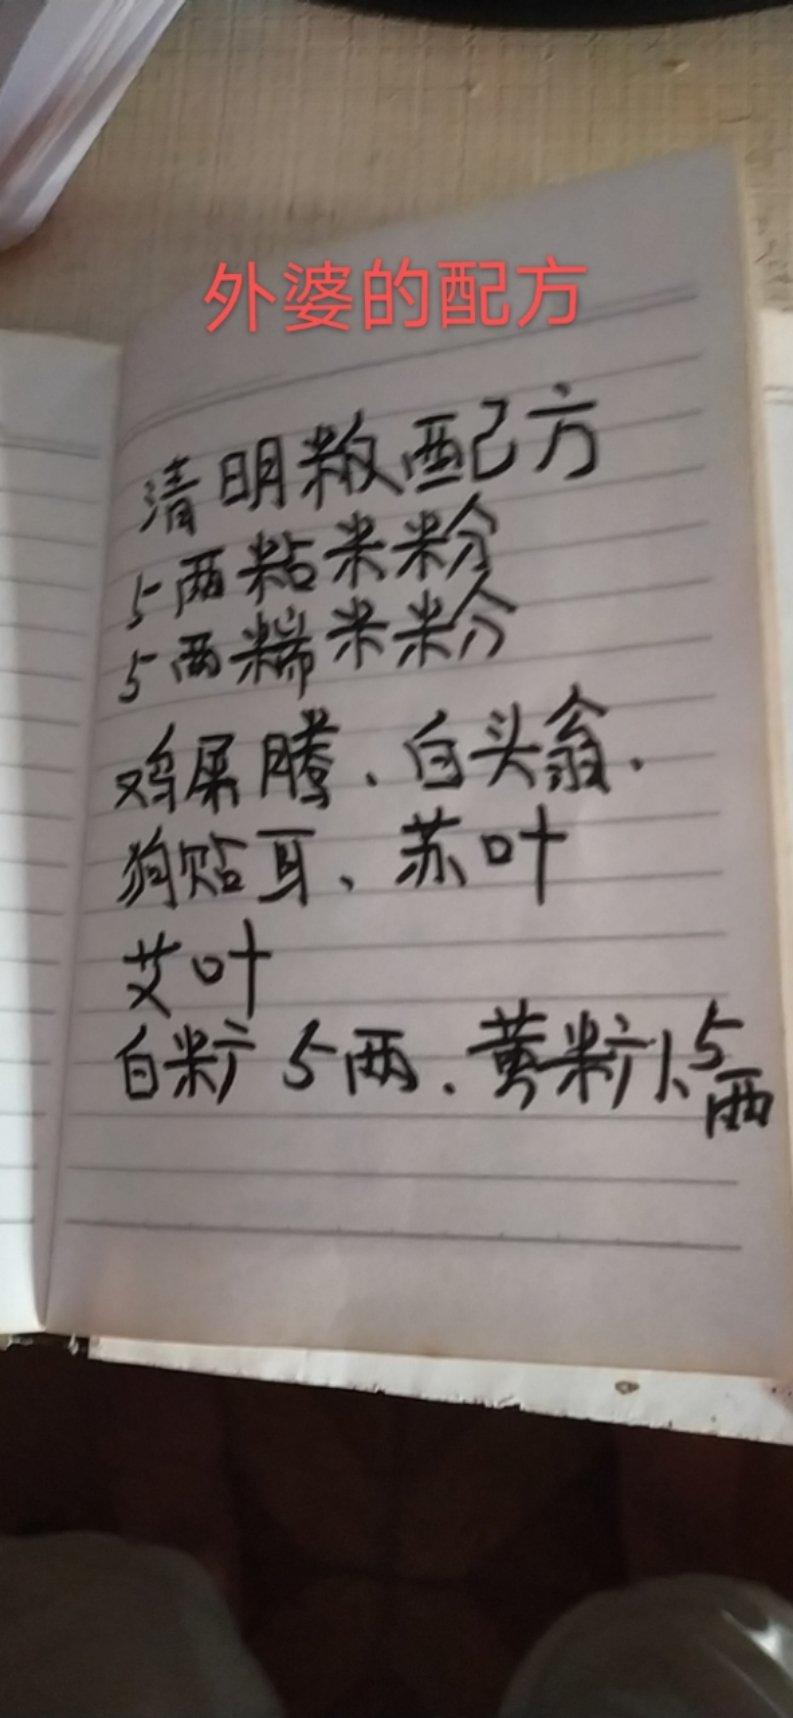 外婆的配方
清明粄配方
5两粘米粉
5两糯米粉
鸡屎腾、白头翁、
狗贴耳、苏叶
艾叶
白糖 5两、黄糖1、5两